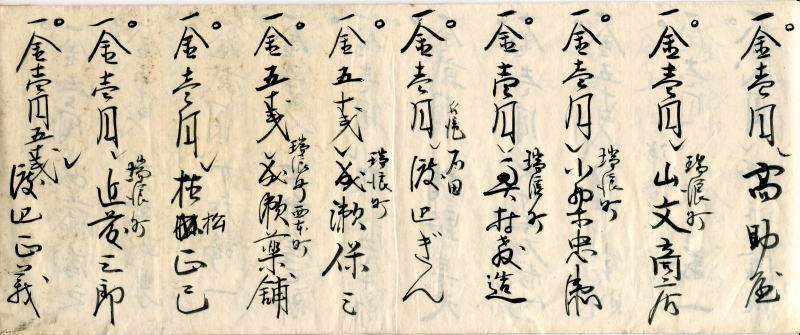 一金壱円 高助屋
一金壱円 瑞浪町 山文商店
一金壱円 瑞浪町 小栗忠
一金壱円 瑞浪町 村義造
一金壱円 石田 渡辺ぎん
一金五十戋 瑞浪町 成瀬保三
一金五十戋 瑞浪町西本町 成瀬薬舗
一金壱円 松正己
一金壱円 瑞浪町 近藤三郎
一金壱円五十戋 渡辺正義